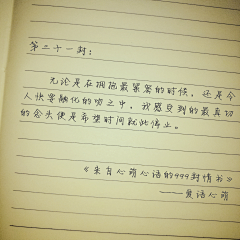 第二十一封：
无论是在拥抱最紧密的时候，还是令
人快要融化的吻之中，我感受到的最真切
的念头便是希望时间就此停止。
《来自心萌心语的999封情书》
——爱语心萌